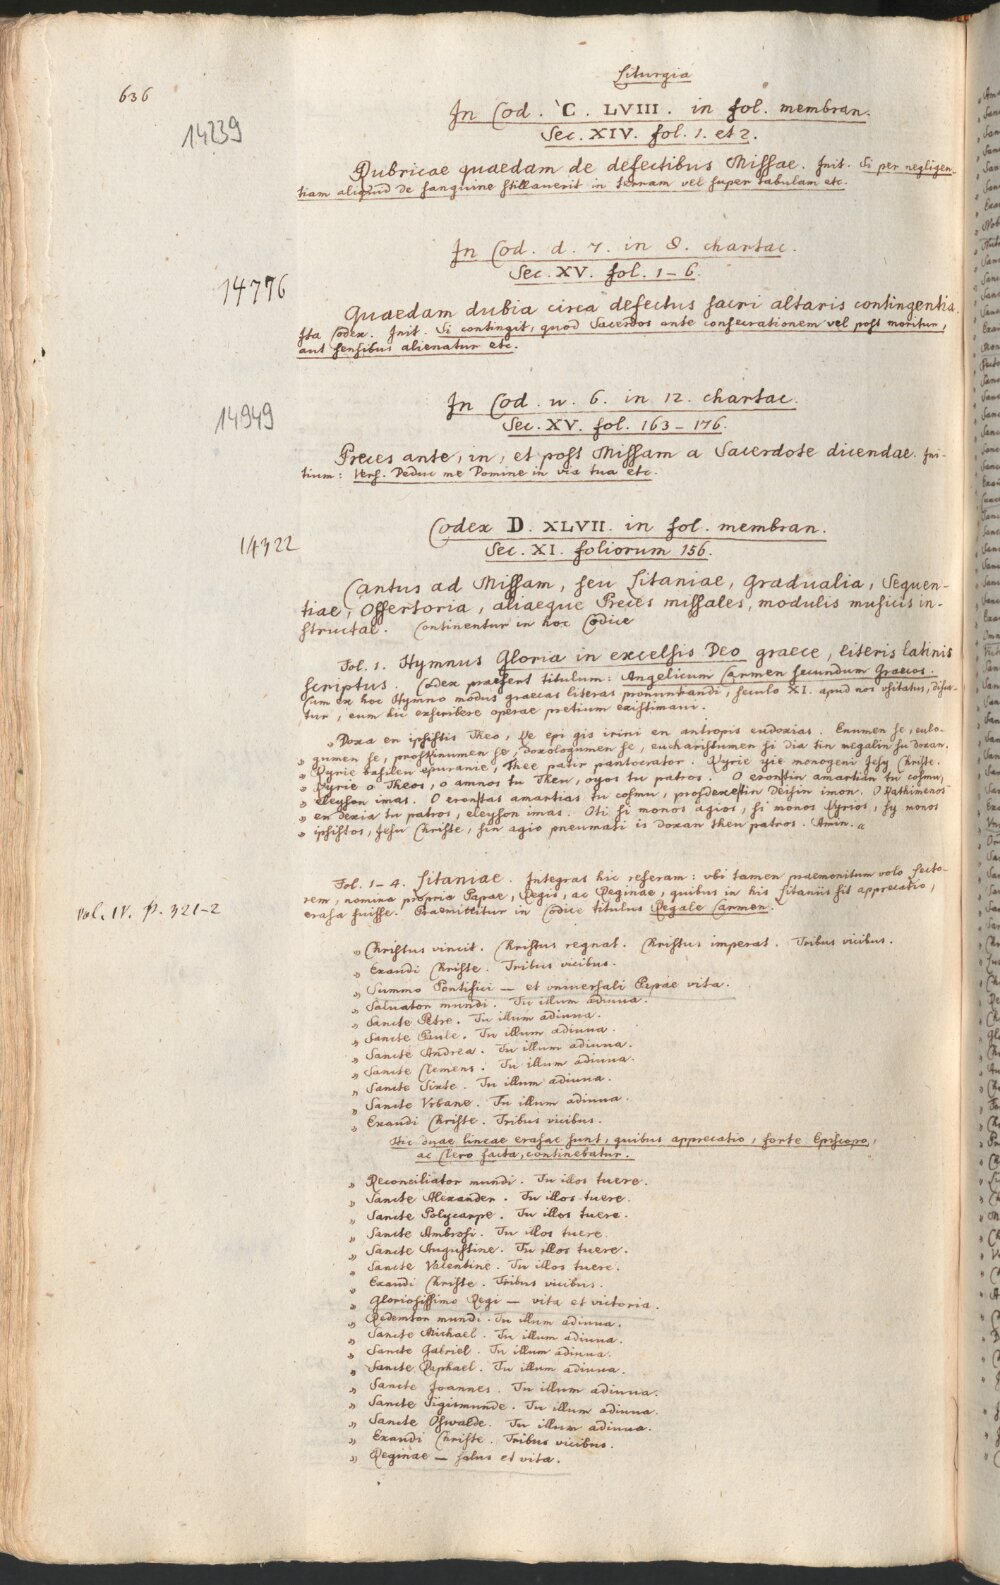 636
Liturgia
14239
In Cod. C. LVIII. in fol. membran.
Sec. XIV. fol. 1. et 2.
Rubricae quaedam de defectibus Missae. Init. Si per negligen-
tiam aliquid de sanguine stillauerit in terram vel super tabulam etc.
14776
In Cod. d. 7. in 8. chartac.
Sec. XV. fol. 1-6.
Quaedam dubia circa defectus sacri altaris contingentia.
Ita Codex. Init. Si contingit, quod Sacerdos ante consecrationem vel post moritur,
aut sensibus alienatur etc.
14949
In Cod. u. 6. in 12. chartac.
Sec. XV. fol. 163-176.
Preces ante, in, et post Missam a Sacerdote dicendae. Ini-
tium: Vers. Deduc me Domine in via tua etc.
14322
Codex D. XLVII. in fol. membran.
Sec. XI. foliorum 156.
Cantus ad Missam, seu Litaniae, Gradualia, Sequen-
tiae, Offertoria, aliaeque Preces missales, modulis musicis in-
structae. Continentur in hoc Codice
Fol. 1. Hymnus Gloria in excelsis Deo graece, literis latinis
scriptus. Codex praefert titulum: Angelicum Carmen secundum Graecos.
Cum ex hoc Hymno modus graecas literas pronuntiandi, seculo XI. apud nos usitatus, disca-
tur, eum hic exscribere operae pretium existimaui.
„ Doxa en ipsistis Theo, Ke epi gis irini en antropis eudoxias. Enumen se, eulo-
„ gumen se, proskinumen se, doxologumen se, eucharistumen si dia tin megalin su doxan.
„ Kyrie basileu epuranie, Thee patir pantocrator. Kyrie yie monogeni Jesu Christe.
„ Kyrie o Theos, o amnos tu Theu, oyos tu patros. O eronstin amartian tu cosmu,
„ eleyson imas. O eronstas amartias tu cosmu, prosdexestin deisin imon. O Kathimenos
„ en dexia tu patros, eleyson imas. Oti si monos agios, si monos Kyrios, sy monos
„ ipsistos, Jesu Christe, sin agio pneumati is doxan theu patros. Amin. „
Vol. IV. p. 321-2
Fol. 1-4. Litaniae. Integras hic referam: vbi tamen praemonitum volo Lecto-
rem, nomina propria Papae, Regis, ac Reginae, quibus in his Litaniis fit apprecatio,
erasa fuisse. Praemittitur in Codice titulus Regale Carmen.
„ Christus vincit. Christus regnat. Christus imperat. Tribus vicibus.
„ Exaudi Christe. Tribus vicibus.
„ Summo Pontifici — et vniuersali Papae vita.
„ Saluator mundi. Tu illum adiuua.
„ Sancte Petre. Tu illum adiuua.
„ Sancte Paule. Tu illum adiuua.
„ Sancte Andrea. Tu illum adiuua.
„ Sancte Clemens. Tu illum adiuua.
„ Sancte Sixte. Tu illum adiuua.
„ Sancte Vrbane. Tu illum adiuua.
„ Exaudi Christe. Tribus vicibus.
Hic duae lineae erasae sunt, quibus apprecatio, forte Episcopo,
ac Clero facta, continebatur.
„ Reconciliator mundi. Tu illos tuere.
„ Sancte Alexander. Tu illos tuere.
„ Sancte Polycarpe. Tu illos tuere.
„ Sancte Ambrosi. Tu illos tuere.
„ Sancte Augustine. Tu illos tuere.
„ Sancte Valentine. Tu illos tuere.
„ Exaudi Christe. Tribus vicibus.
„ Gloriosissimo Regi — vita et victoria.
„ Redemtor mundi. Tu illum adiuua.
„ Sancte Michael. Tu illum adiuua.
„ Sancte Gabriel. Tu illum adiuua.
„ Sancte Raphael. Tu illum adiuua.
„ Sancte Joannes. Tu illum adiuua.
„ Sancte Sigismunde. Tu illum adiuua.
„ Sancte Oswalde. Tu illum adiuua.
„ Exaudi Christe. Tribus vicibus.
„ Reginae — salus et vita.